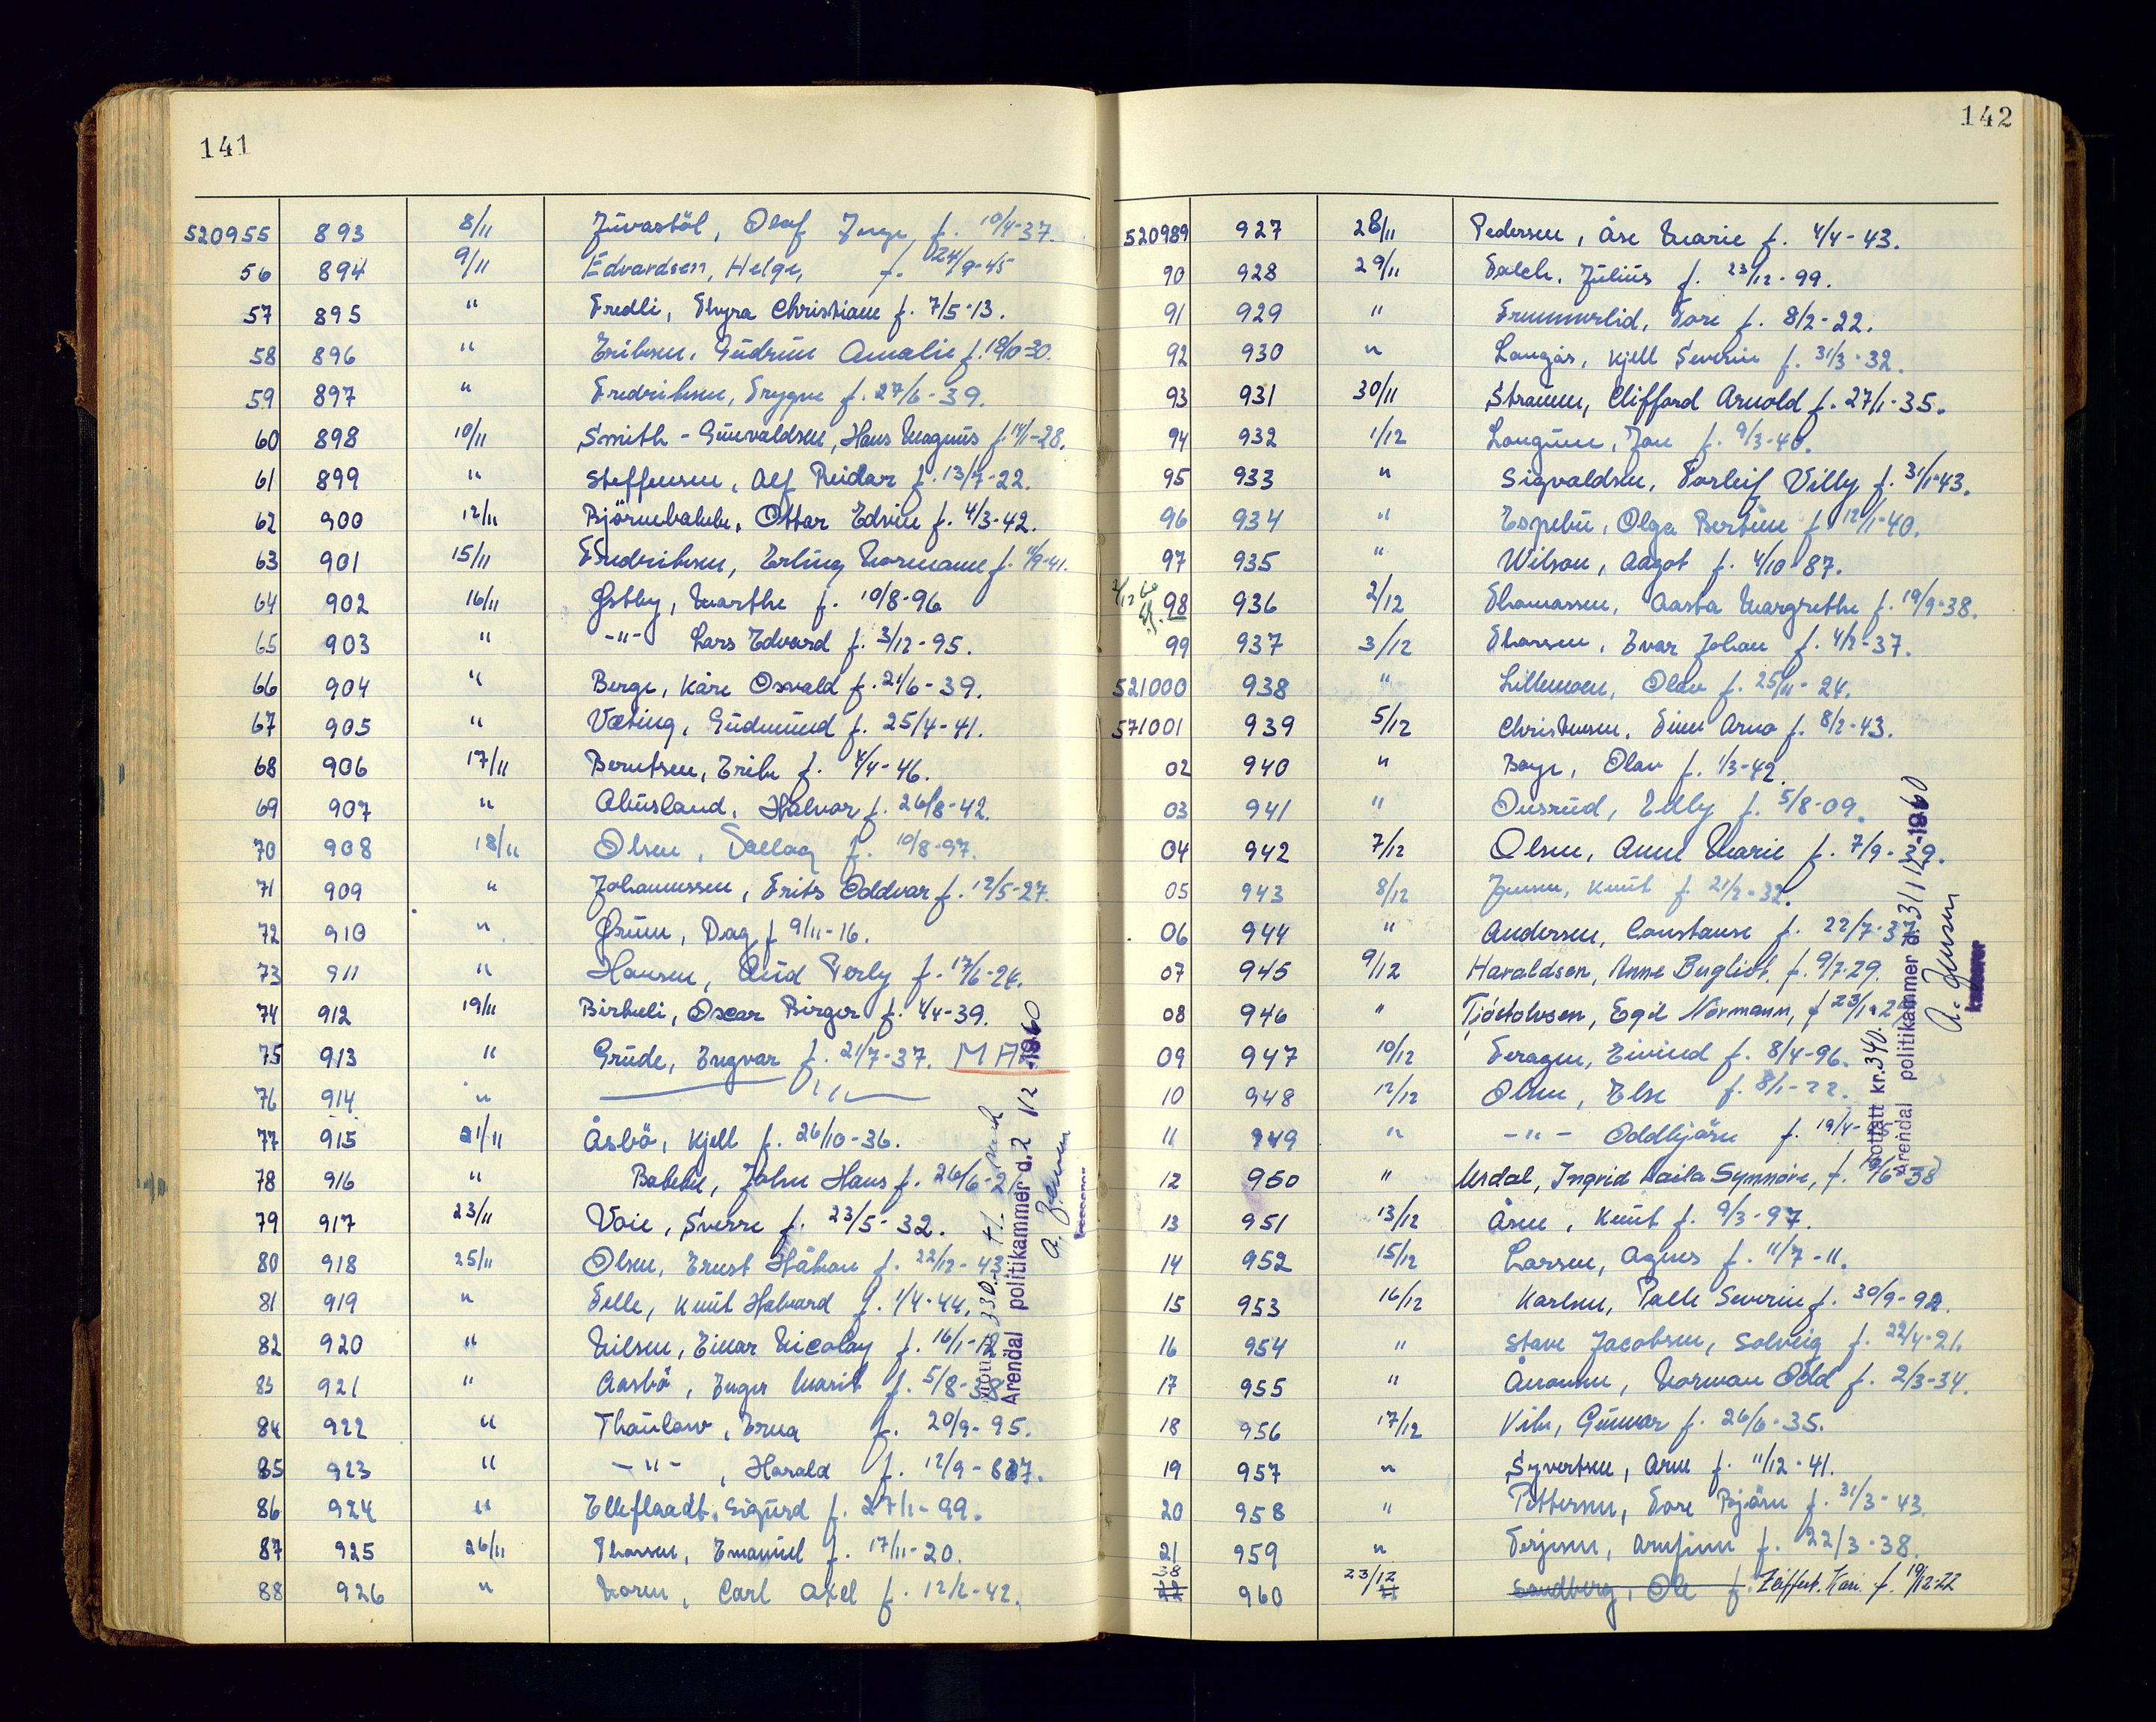 141
520955 893 8/11 Juvastöl, Olaf Inge, f. 10/4-37.
56 894 9/11 Edvardsen, Helge, f. 24/9-45
57 895 " Fredli, Thyra Christiane f. 7/5-13.
58 896 " Eriksen, Gudrun Amalie f. 18/10-30.
59 897 " Fredriksen, Trygve f. 27/6-39.
60 898 10/11 Smith-Gunvaldsen, Hans Magnus f. 14/1-28.
61 899 " Steffensen, Alf Reidar f. 13/7-22.
62 900 12/11 Björnebakke, Ottar Edvin f. 4/3-42.
63 901 15/11 Fredriksen, Erling Normann f. 4/9-41.
64 902 16/11 Østby, Marthe f. 10/8-96
65 903 " -"- Lars Edvard f. 3/12-95.
66 904 " Berge, Kåre Osvald f. 21/6-39.
67 905 " Væting, Gudmund f. 25/4-41.
68 906 17/11 Berntsen, Erik f. 4/4-46.
69 907 " Abusland, Halvor f. 26/8-42.
70 908 18/11 Olsen, Tallag f. 10/8-97.
71 909 " Johannessen, Frits Oddvar f. 12/5-27.
72 910 " Grünn, Dag f 9/11-16.
73 911 " Hansen, Aud Perly f. 17/6-24.
74 912 19/11 Birkeli, Oscar Birger f. 4/4-39.
75 913 " Grude, Yngvar f. 21/7-37.
76 914 " -"-
77 915 21/11 Åsbö, Kjell f. 26/10-36.
78 916 " Bakke, John Hans f. 26/6-2
79 917 23/11 Voie, Sverre f. 23/5-32.
80 918 25/11 Olsen, Ernst Håkon f. 22/12-43
81 919 " Felle, Knut Halvard f. 1/4-44.
82 920 " Nilsen, Einar Nicolay f. 16/1-12
83 921 " Aasbö, Inger Marit f. 5/8-38
84 922 " Thaulow, Erna f. 20/9-95.
85 923 " -"-, Harald f. 12/9-87.
86 924 " Elleflaadt, Sigurd f. 27/1-99.
87 925 26/11 Thorsen, Emanuel f. 17/11-20.
88 926 " Noren, Carl Axel f. 12/2-42.
330.
Arendal politikammer d. 2 1/2 1960
A. Jensen
142
520989 927 28/11 Pedersen, Åse Marie f. 4/4-43.
90 928 29/11 Falch, Julius f. 23/12-99.
91 929 " Frummerlid, Tore f. 8/2-22.
92 930 " Langås, Kjell Severin f. 31/3-32.
93 931 30/11 Straumn, Clifford Arnold f. 27/1-35.
94 932 1/12 Langume, Jan f. 9/3-40.
95 933 " Sigvaldsen, Torleif Villy f. 31/1-43.
96 934 " Espebu, Olga Bertine f. 12/1-40.
97 935 " Wilson, Aagot f. 4/10-87.
98 936 2/12 Thomassen, Aasta Margrethe f. 19/9-38.
99 937 3/12 Thorsen, Ivar Johan f. 4/2-37.
521000 938 " Lillemoen, Olav f. 25/11-24.
571001 939 5/12 Christensen, Finn Arno f. 8/2-43.
02 940 " Boye, Olav f. 1/3-42.
03 941 " Ousrud, Edly f. 5/8-09.
04 942 7/12 Olsen, Anne Marie f. 7/9-29.
05 943 8/12 Jensen, Knut f 21/2-32.
06 944 " Andersen, Constanse f. 22/7-37
07 945 9/12 Haraldsen, Anne Bergliot, f. 9/7-29.
08 946 " Tjöstolvsen, Egil Normann, f 23/1-2
09 947 10/12 Feragen, Eivind f. 8/4-96.
10 948 12/12 Olsen, Else f. 8/1-22.
11 949 " -"- Oddbjörn f. 19/4-
12 950 " Usdal, Ingrid Laila Synnøve, f. 19/6-38
13 951 13/12 Åsen, Knut f. 9/3-97.
14 952 15/12 Larsen, Agnes f. 11/7-11.
15 953 16/12 Karlsen, Palle Severin f. 30/9-92.
16 954 " Stave Jacobsen, Solveig f. 22/4-21.
17 955 " Ånonsen, Norman Odd f. 2/3-34.
18 956 17/12 Vik, Gunnar f. 26/6-35.
19 957 " Syvertsen, Arne f. 11/12-41.
20 958 " Pettersen, Tore Björn f. 31/3-43.
21 959 " Terjesen, Arnfinn f. 22/3-38.
38 960 23/12 Sandberg, Ole f. Zeiffert, Kari f. 19/12-22
Mottatt kr. 340.
Arendal politikammer d. 31/12-1960
A. Jensen
kasserer